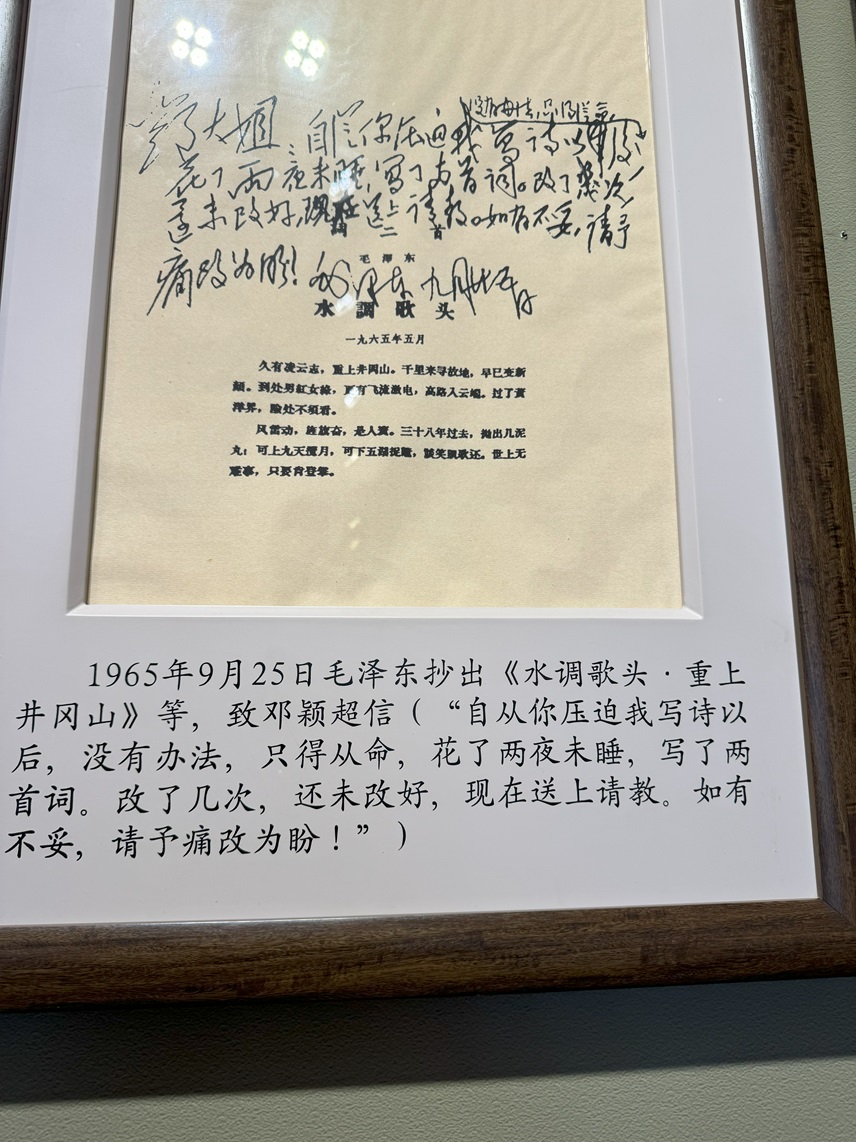 没有办法，只得从命，
邓大姐：自从你压迫我写诗以后，
花了两夜未睡，写了两首词。改了几次，
还未改好，现在送上请教。如有不妥，请予
二首
痛改为盼！毛泽东 九月廿五日
毛泽东
水調歌头
一九六五年五月
久有凌云志，重上井岡山。千里来寻故地，早已变新
顏。到处男紅女綠，更有飞流激电，高路入云端。过了黄
洋界，險处不须看。
风雷动，旌旗奋，是人寰。三十八年过去，抛出几泥
丸：可上九天揽月，可下五湖捉鼈，談笑凱歌还。世上无
难事，只要肯登攀。
1965年9月25日毛泽东抄出《水调歌头·重上
井冈山》等，致邓颖超信（“自从你压迫我写诗以
后，没有办法，只得从命，花了两夜未睡，写了两
首词。改了几次，还未改好，现在送上请教。如有
不妥，请予痛改为盼！”）